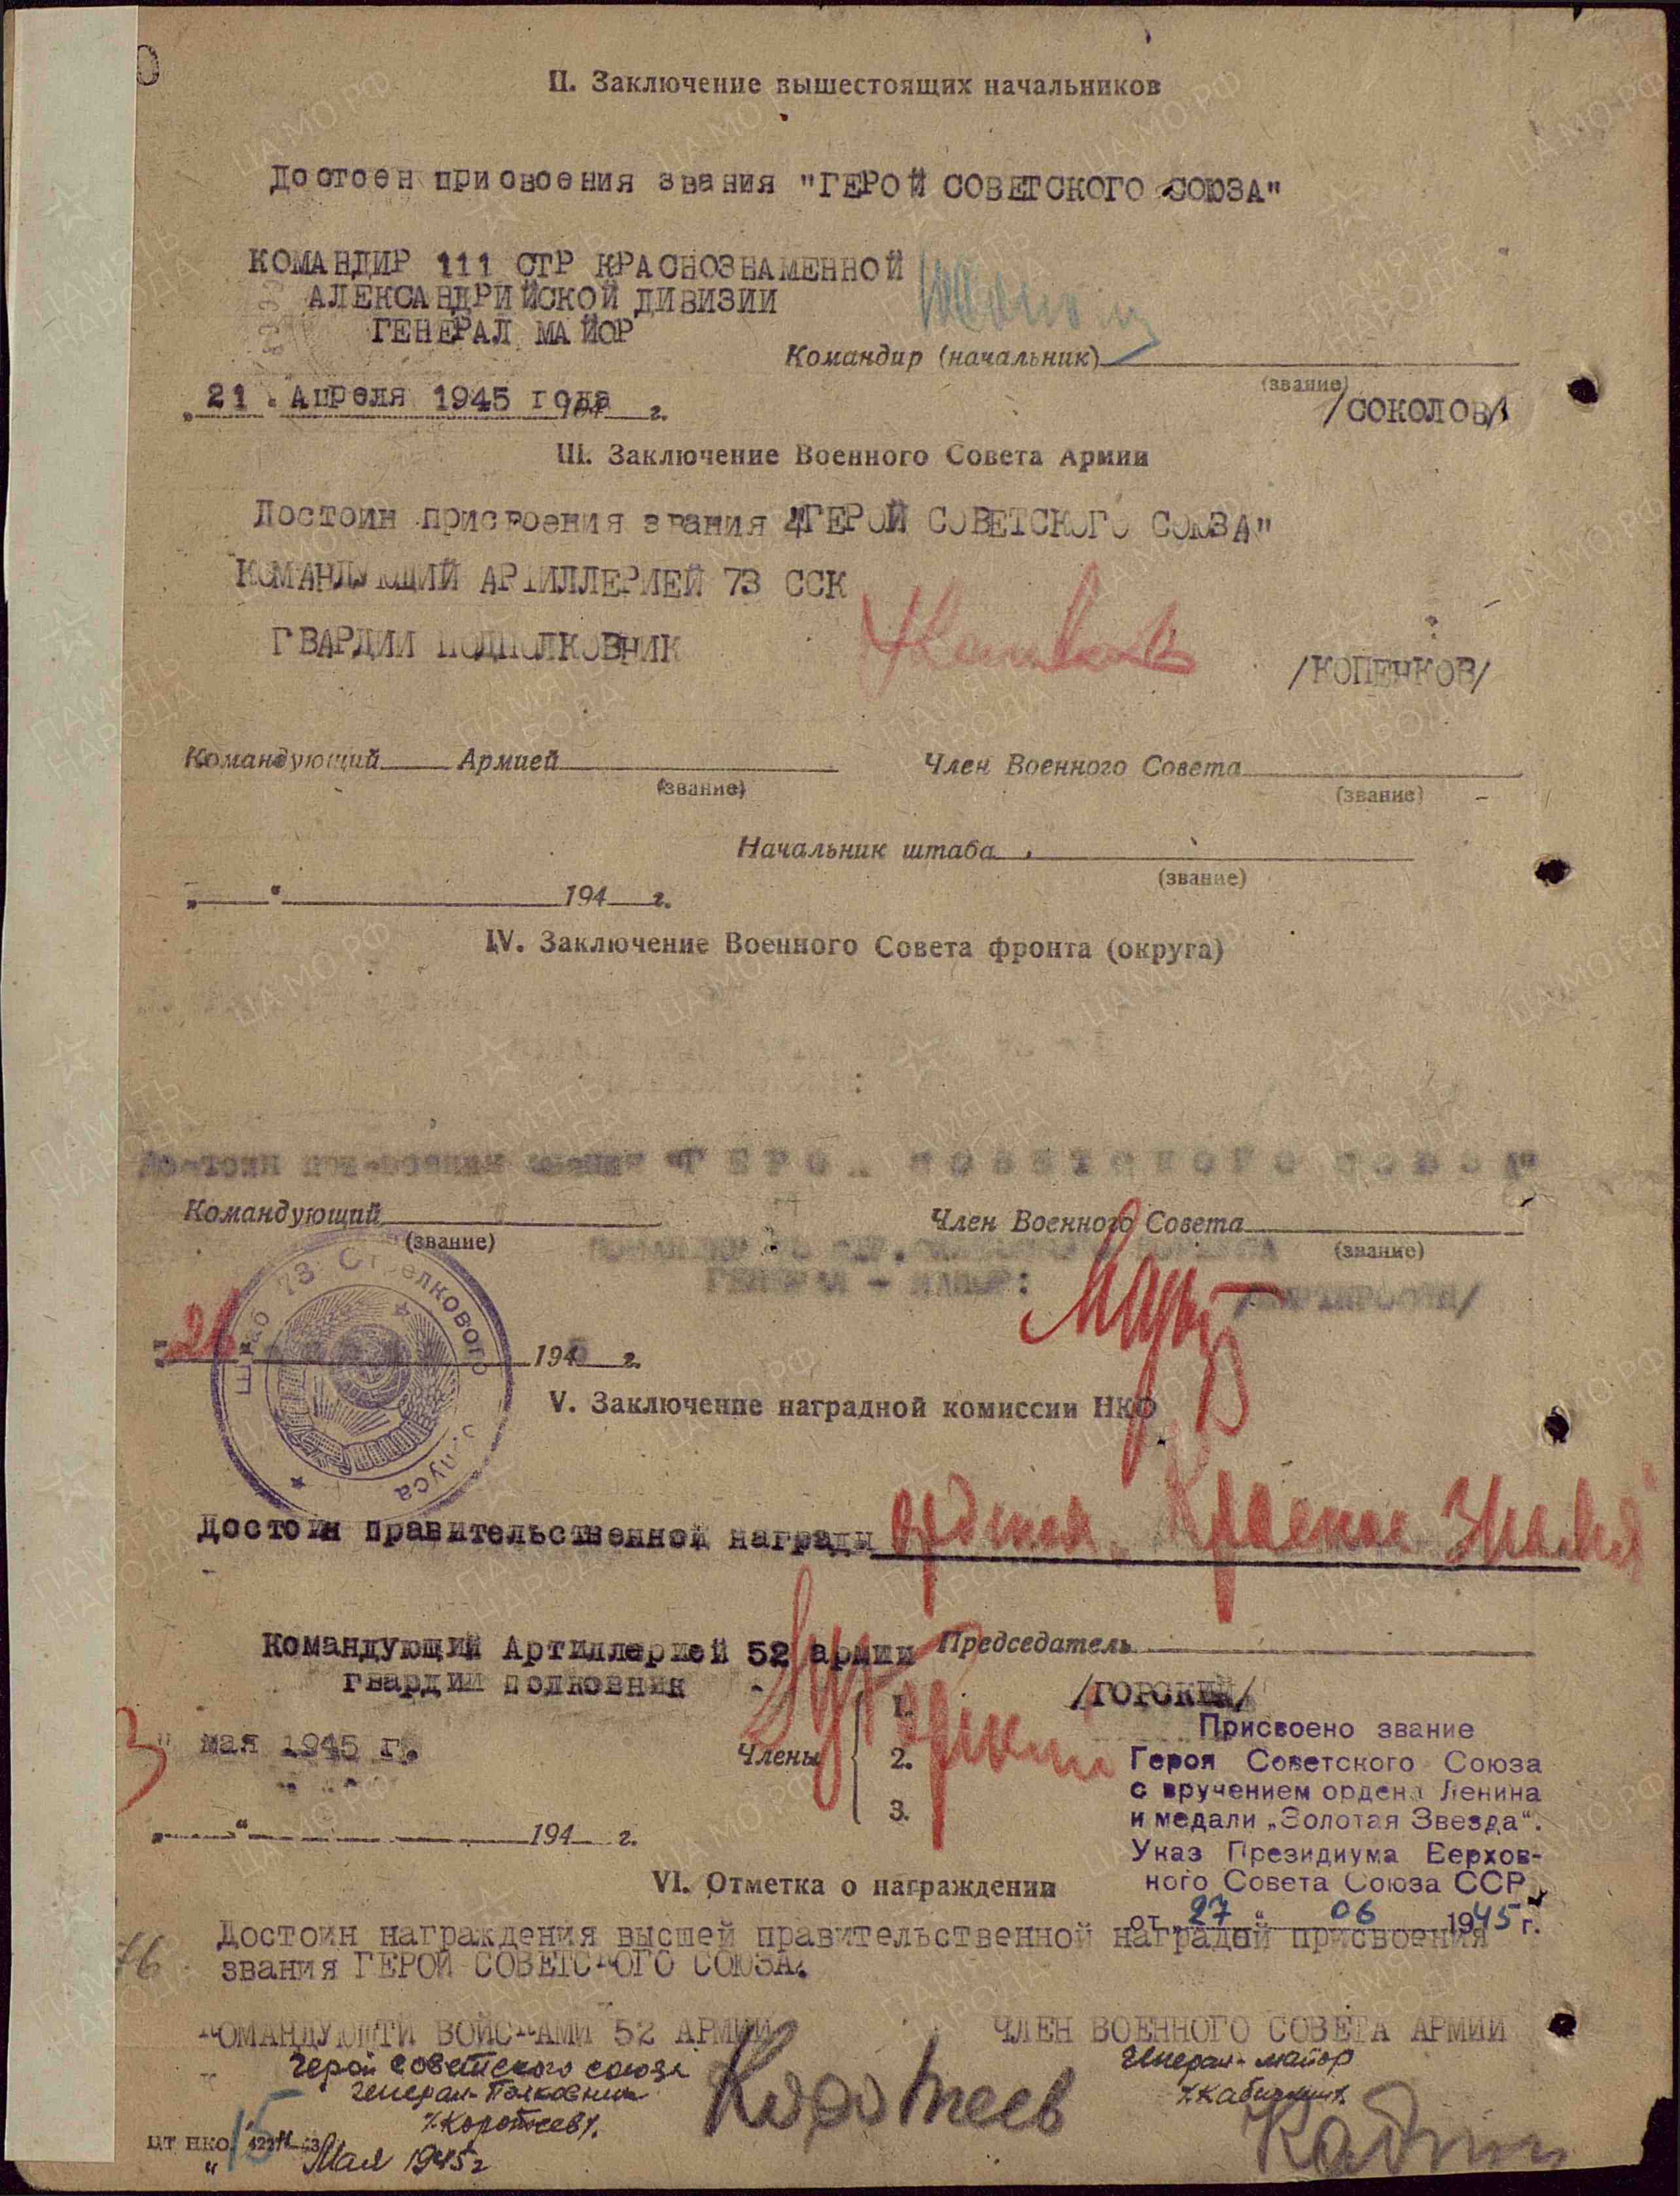 II. Заключение вышестоящих начальников
Достоен присвоения звания "ГЕРОЙ СОВЕТСКОГО СОЮЗА"
КОМАНДИР 111 СТР КРАСНОЗНАМЕННОЙ
АЛЕКСАНДРИЙСКОЙ ДИВИЗИИ
ГЕНЕРАЛ МАЙОР
Командир (начальник)
(звание)
„21. Апреля 1945 года 194 г.
/СОКОЛОВ/
III. Заключение Военного Совета Армии
Достоин присвоения звания "ГЕРОЙ СОВЕТСКОГО СОЮЗА"
КОМАНДУЮЩИЙ АРТИЛЛЕРИЕЙ 73 ССК
ГВАРДИИ ПОДПОЛКОВНИК
/КОПЕНКОВ/
Командующий Армией
(звание)
Член Военного Совета
(звание)
Начальник штаба
(звание)
„ “ 194 г.
IV. Заключение Военного Совета фронта (округа)
Командующий
(звание)
Член Военного Совета
(звание)
ГЕНЕРАЛ - МАЙОР:
/МАРТИРОСЯН/
Штаб 73 Стрелкового
корпуса
„26 1945 г.
V. Заключение наградной комиссии НКО
Достоин правительственной награды ордена „Красное Знамя"
Командующий Артиллерией 52 армии
Председатель
гвардии полковник
/ГОРСКИЙ/
3" мая 1945 г.
Члены
1.
2.
3.
Присвоено звание
Героя Советского Союза
с вручением ордена Ленина
и медали „Золотая Звезда“.
Указ Президиума Верхов-
ного Совета Союза ССР
от „27“ 06 1945 г.
„ “ 194 г.
VI. Отметка о награждении
Достоин награждения высшей правительственной наградой присвоения
звания ГЕРОЙ СОВЕТСКОГО СОЮЗА.
КОМАНДУЮЩИЙ ВОЙСКАМИ 52 АРМИИ
ЧЛЕН ВОЕННОГО СОВЕТА АРМИИ
Герой советского союза
Генерал-Полковник
/Коротеев/.
Коротеев
Генерал-майор
/Кабичкин/.
Кабичкин
цт нко
„15 Мая 1945г
ЦА МО РФ
ПАМЯТЬ
НАРОДА